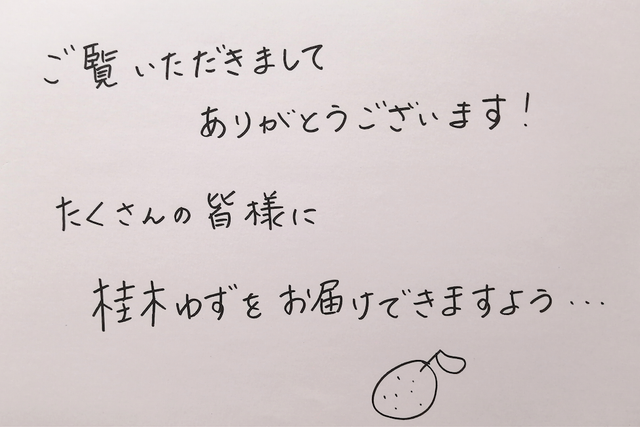 ご覧いただきまして
ありがとうございます!
たくさんの皆様に
桂木ゆずをお届けできますよう...